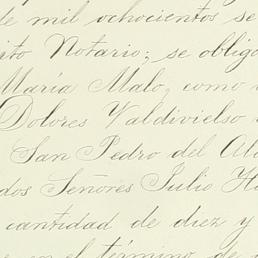 de mil ochocientos se
ito Notario; se obligo
María Malo, como
Dolores Valdivielso
San Pedro del Ala
dos Señores Julio Ha
cantidad de diez y
en el término de